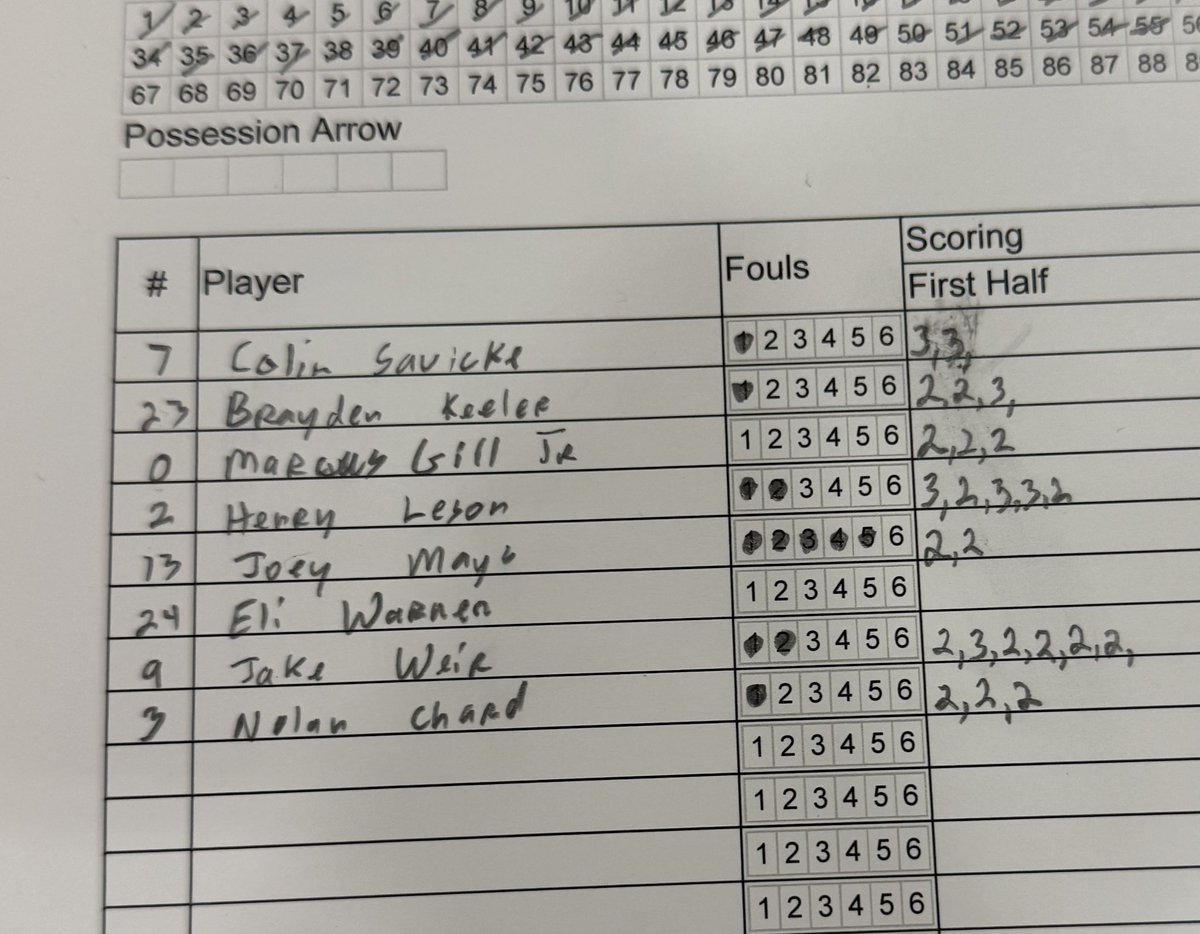 1 2 3 4 5 6 7 8 9 10 11 12 13 14 15
34 35 36 37 38 39 40 41 42 43 44 45 46 47 48 49 50 51 52 53 54 55
67 68 69 70 71 72 73 74 75 76 77 78 79 80 81 82 83 84 85 86 87 88
Possession Arrow
# Player Fouls Scoring
First Half
7 Colin Savicke 1 2 3 4 5 6 3,3,
23 Brayden Keeler 1 2 3 4 5 6 2,2,3,
0 Marcus Gill Jr 1 2 3 4 5 6 2,2,2
2 Henry Leson 1 2 3 4 5 6 3,2,3,3,2
13 Joey Mayo 1 2 3 4 5 6 2,2
24 Eli Warnen 1 2 3 4 5 6
9 Jake Weir 1 2 3 4 5 6 2,3,2,2,2,2,
3 Nolan Chard 1 2 3 4 5 6 2,2,2
1 2 3 4 5 6
1 2 3 4 5 6
1 2 3 4 5 6
1 2 3 4 5 6